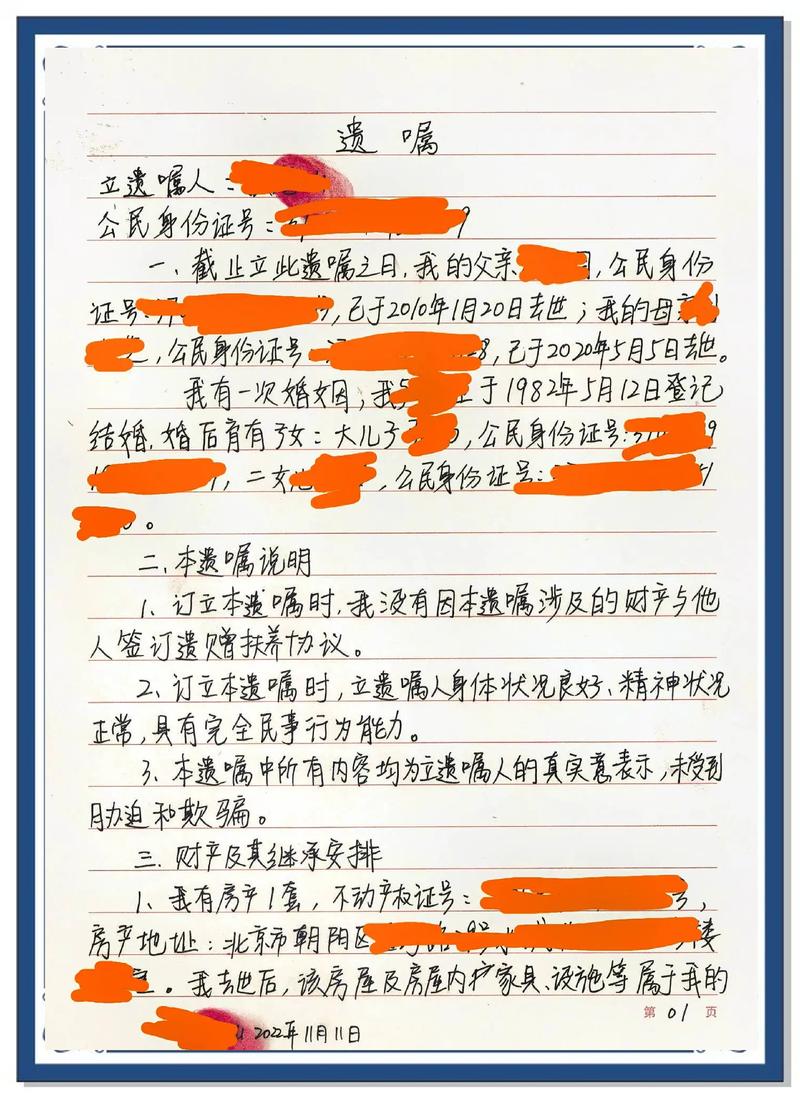 遗 嘱
立遗嘱人：
公民身份证号：9
一、截止立此遗嘱之日，我的父亲，公民身份
证号：，已于2010年1月20日去世；我的母亲
，公民身份证号，已于2020年5月5日去世。
我有一次婚姻，我于1982年5月12日登记
结婚，婚后育有子女：大儿子，公民身份证号：9
，二女儿，公民身份证号：
。
二、本遗嘱说明
1、订立本遗嘱时，我没有因本遗嘱涉及的财产与他
人签订遗赠扶养协议。
2、订立本遗嘱时，立遗嘱人身体状况良好、精神状况
正常，具有完全民事行为能力。
3、本遗嘱中所有内容均为立遗嘱人的真实意思表示，未受到
胁迫和欺骗。
三、财产及其继承安排
1、我有房产1套，不动产权证号：号，
房产地址：北京市朝阳区楼
。我去世后，该房屋及房屋内护家具、设施等属于我的
第 01 页
2022年11月11日